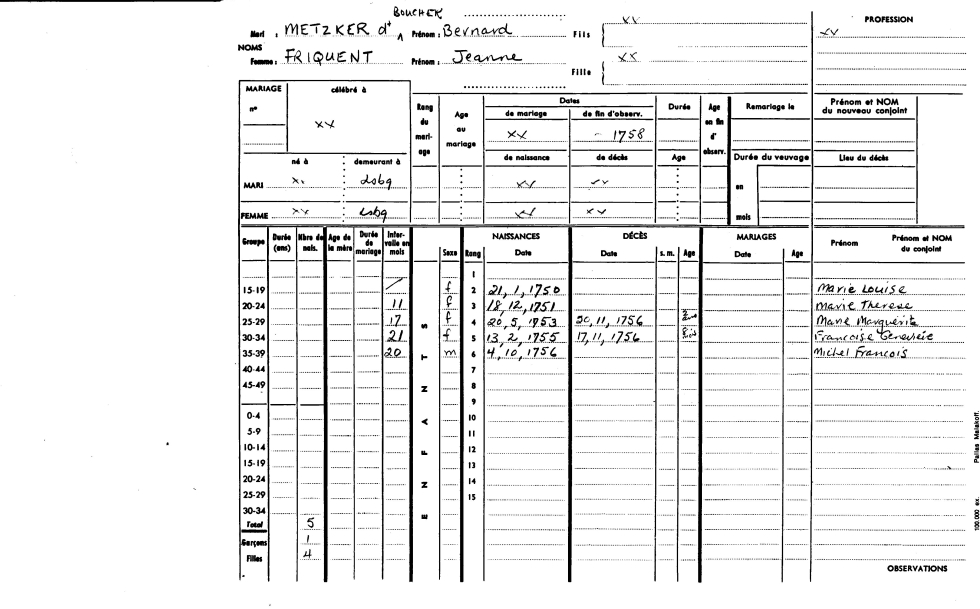 BOUCHER
PROFESSION
NOMS
Mari : METZKER dt ^ Prénom : Bernard Fils xx xx
Femme : FRIQUENT Prénom : Jeanne Fille xx
MARIAGE célébré à Rang du mari- age Age au mariage Dates Durée Age en fin d' observ. Remariage le Prénom et NOM du nouveau conjoint
n° de mariage de fin d'observ.
xx xx - 1758
né à demeurant à de naissance de décès Age Durée du veuvage Lieu du décès
MARI x. Lsbg xx xx en
FEMME xx Lsbg xx xx mois
Groupe Durée (ans) Nbre de nais. Age de la mère Durée de mariage Inter- valle en mois ENFANTS Sexe Rang NAISSANCES Date DÉCÈS Date s. m. Age MARIAGES Date Age Prénom Prénom et NOM du conjoint
1
15-19 / f 2 21, 1, 1750 Marie Louise
20-24 11 f 3 18, 12, 1751 Marie Therese
25-29 17 f 4 20, 5, 1753 30, 11, 1756 Marie Marguerite
30-34 21 f 5 13, 2, 1755 17, 11, 1756 Francoise Genevieve
35-39 20 m 6 4, 10, 1756 Michel Francois
40-44 7
45-49 8
9
0-4 10
5-9 11
10-14 12
15-19 13
20-24 14
25-29 15
30-34
Total 5
Garçons 1
Filles 4
OBSERVATIONS
100 000 ex. Pallas Malakoff.